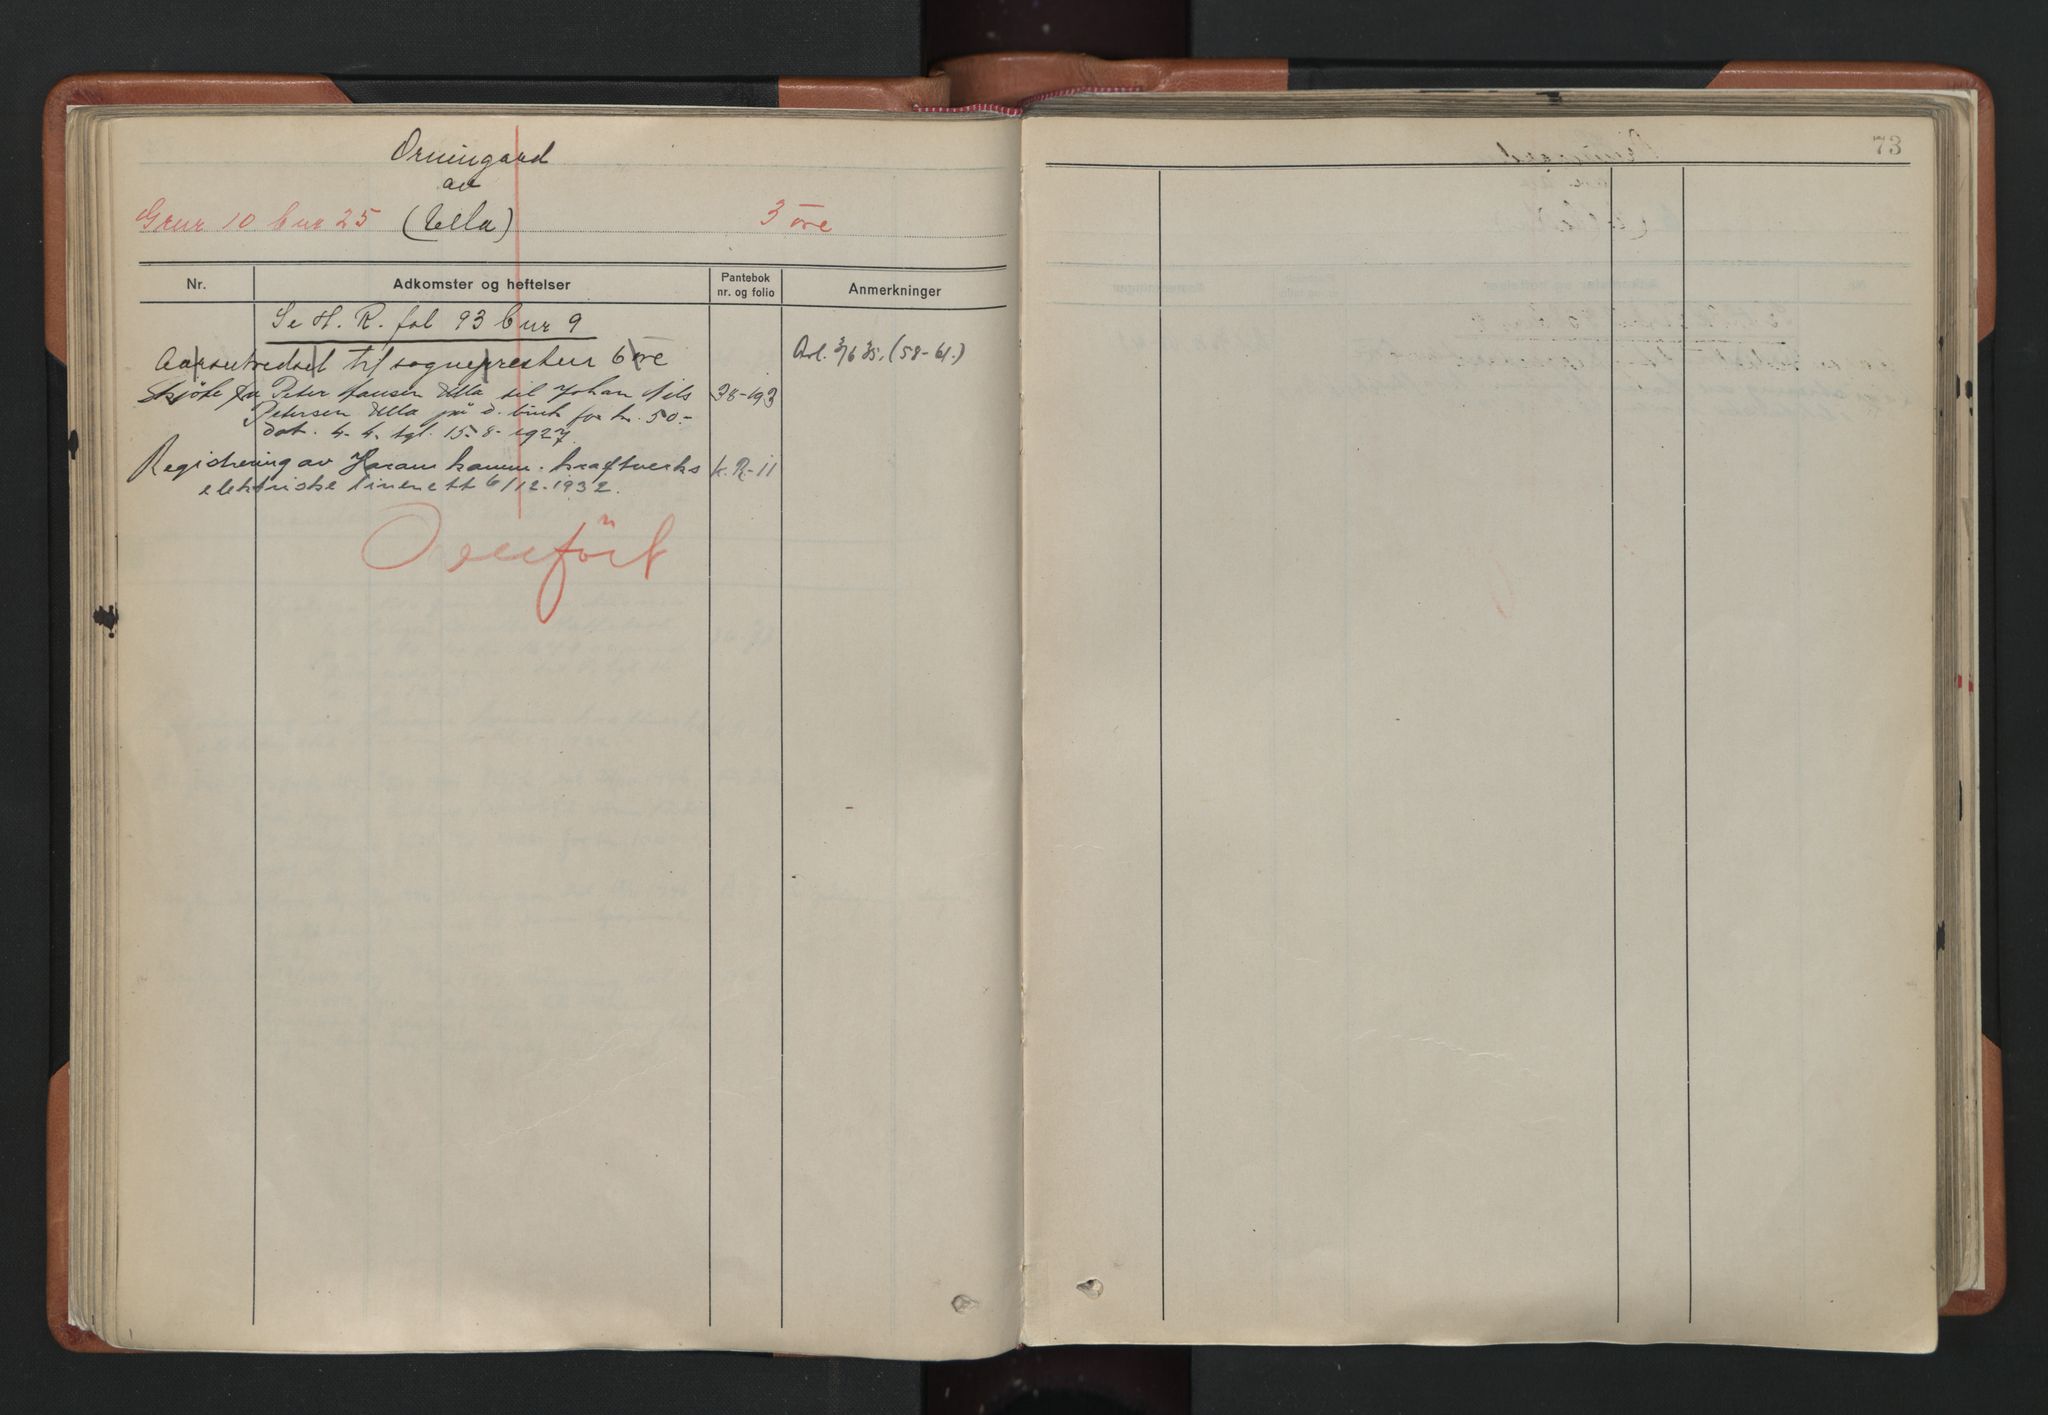 Orningard
av
Gnr 10 bnr 25 (Ulla) 3 øre
Nr. Adkomster og heftelser Pantebok nr. og folio Anmerkninger
Se H. R. fol 93 bnr 9
Aarsutredsel til sognepresten 6 øre Avl. 3/6 35. (58-61.)
Skjöte fra Peter Hansen Ulla til Johan Nils 38-193
Petersen Ulla på d. bruk for kr. 50.-
dat. 4-4. tgl. 15-8-1927.
Registrering av Haram komm. kraftverks k.R-11
elektriske linenett 6/12-1932.
Overfört
73